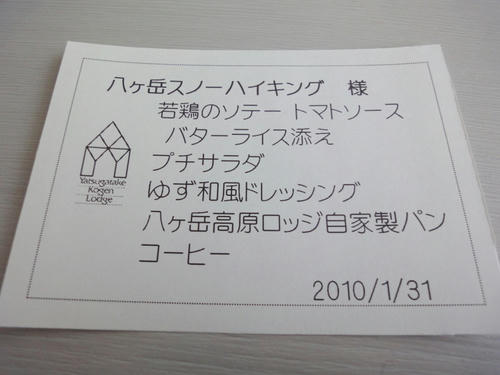 八ヶ岳スノーハイキング 様
若鶏のソテー トマトソース
バターライス添え
プチサラダ
ゆず和風ドレッシング
八ヶ岳高原ロッジ自家製パン
コーヒー
Yatsugatake
Kogen
Lodge
2010/1/31